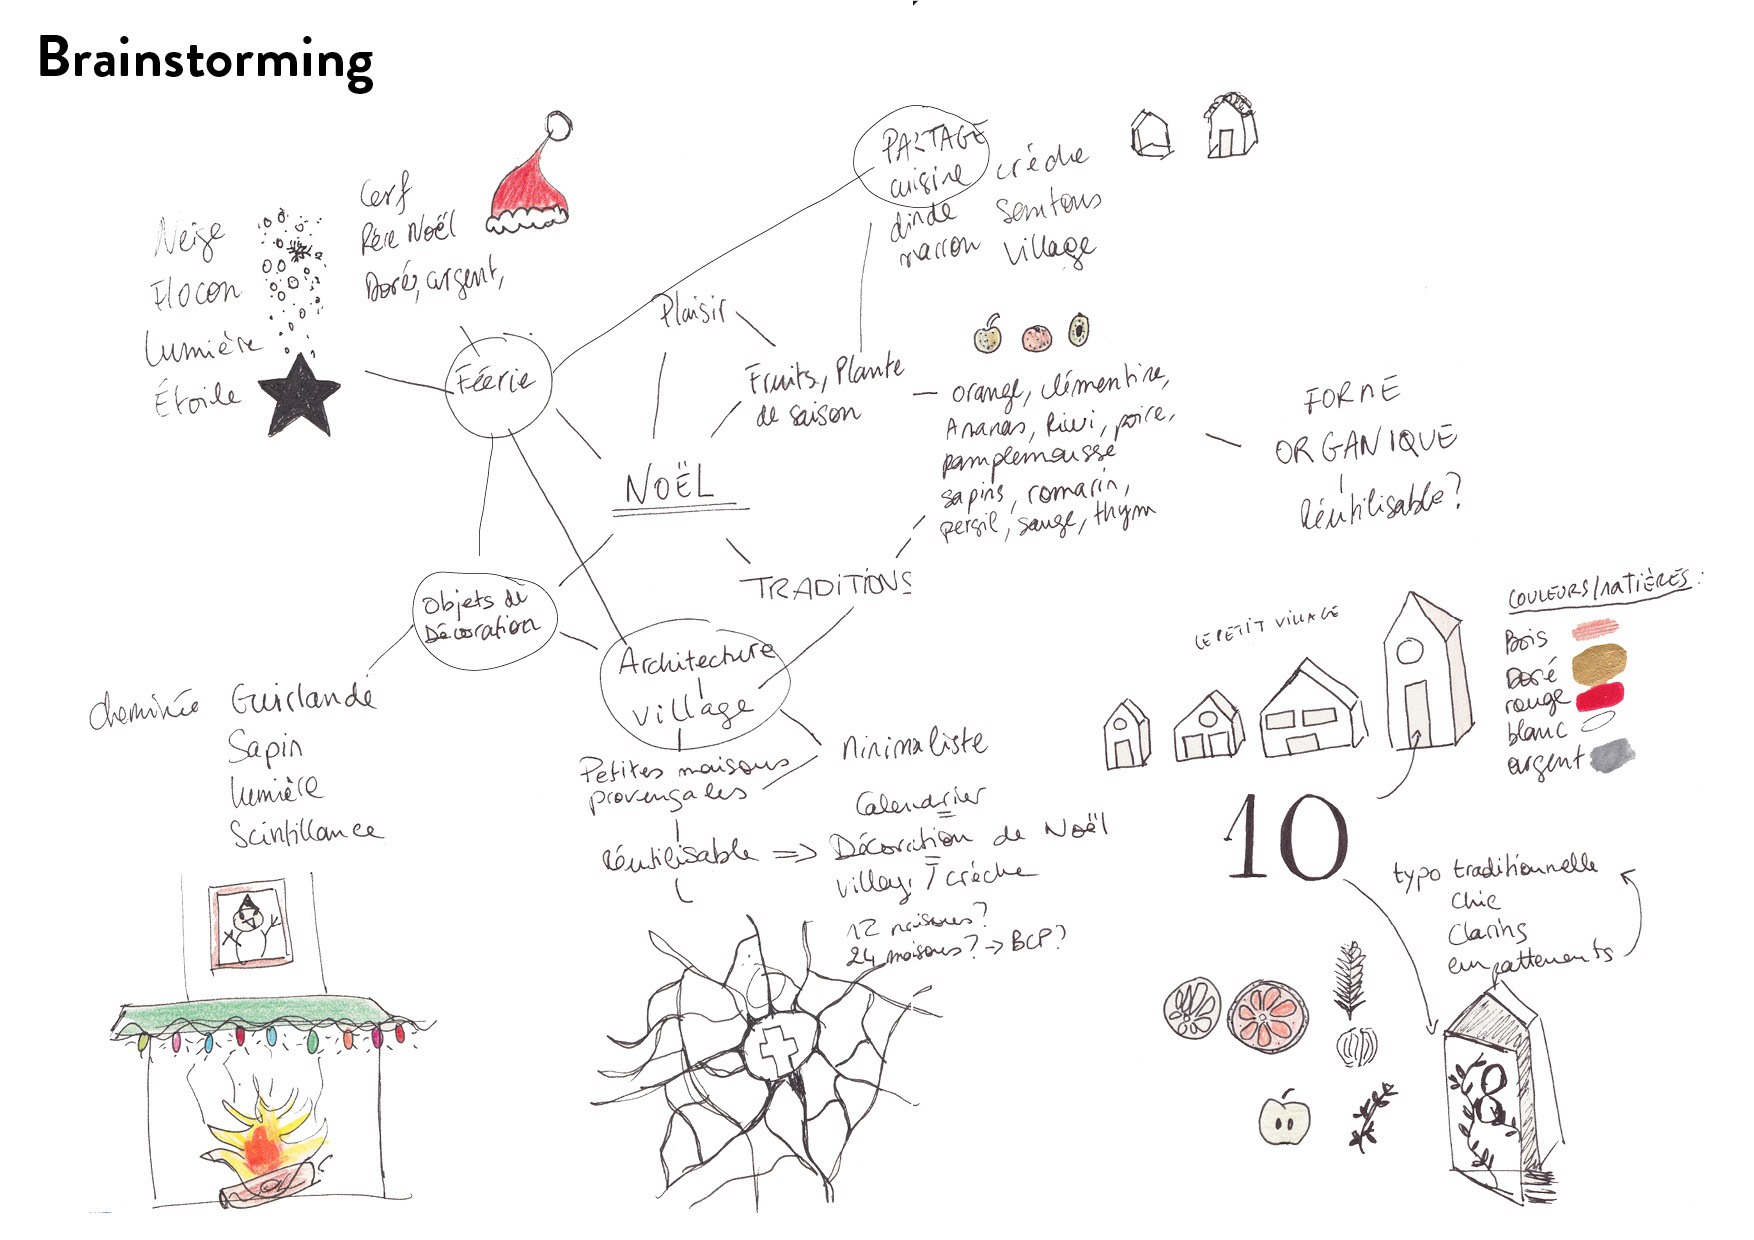 Brainstorming
Neige
Flocon
Lumière
Étoile
Cerf
Père Noël
Doré, argent,
Féerie
PARTAGE
cuisine
dinde
marron
crèche
Santons
village
Plaisir
Fruits, Plante
de saison
orange, clémentine,
Ananas, kiwi, poire,
pamplemousse
sapins, romarin,
persil, sauge, thym
FORME
ORGANIQUE
Réutilisable?
NOËL
TRADITIONS
Objets de
Décoration
cheminée
Guirlande
Sapin
lumière
Scintillance
Architecture
village
Petites maisons
provençales
minimaliste
Réutilisable =>
Calendrier
Décoration de Noël
village crèche
12 maisons?
24 maisons? -> BCP?
LE PETIT VILLAGE
COULEURS/MATIÈRES:
Bois
Doré
rouge
blanc
argent
10
typo traditionnelle
Chic
empattements